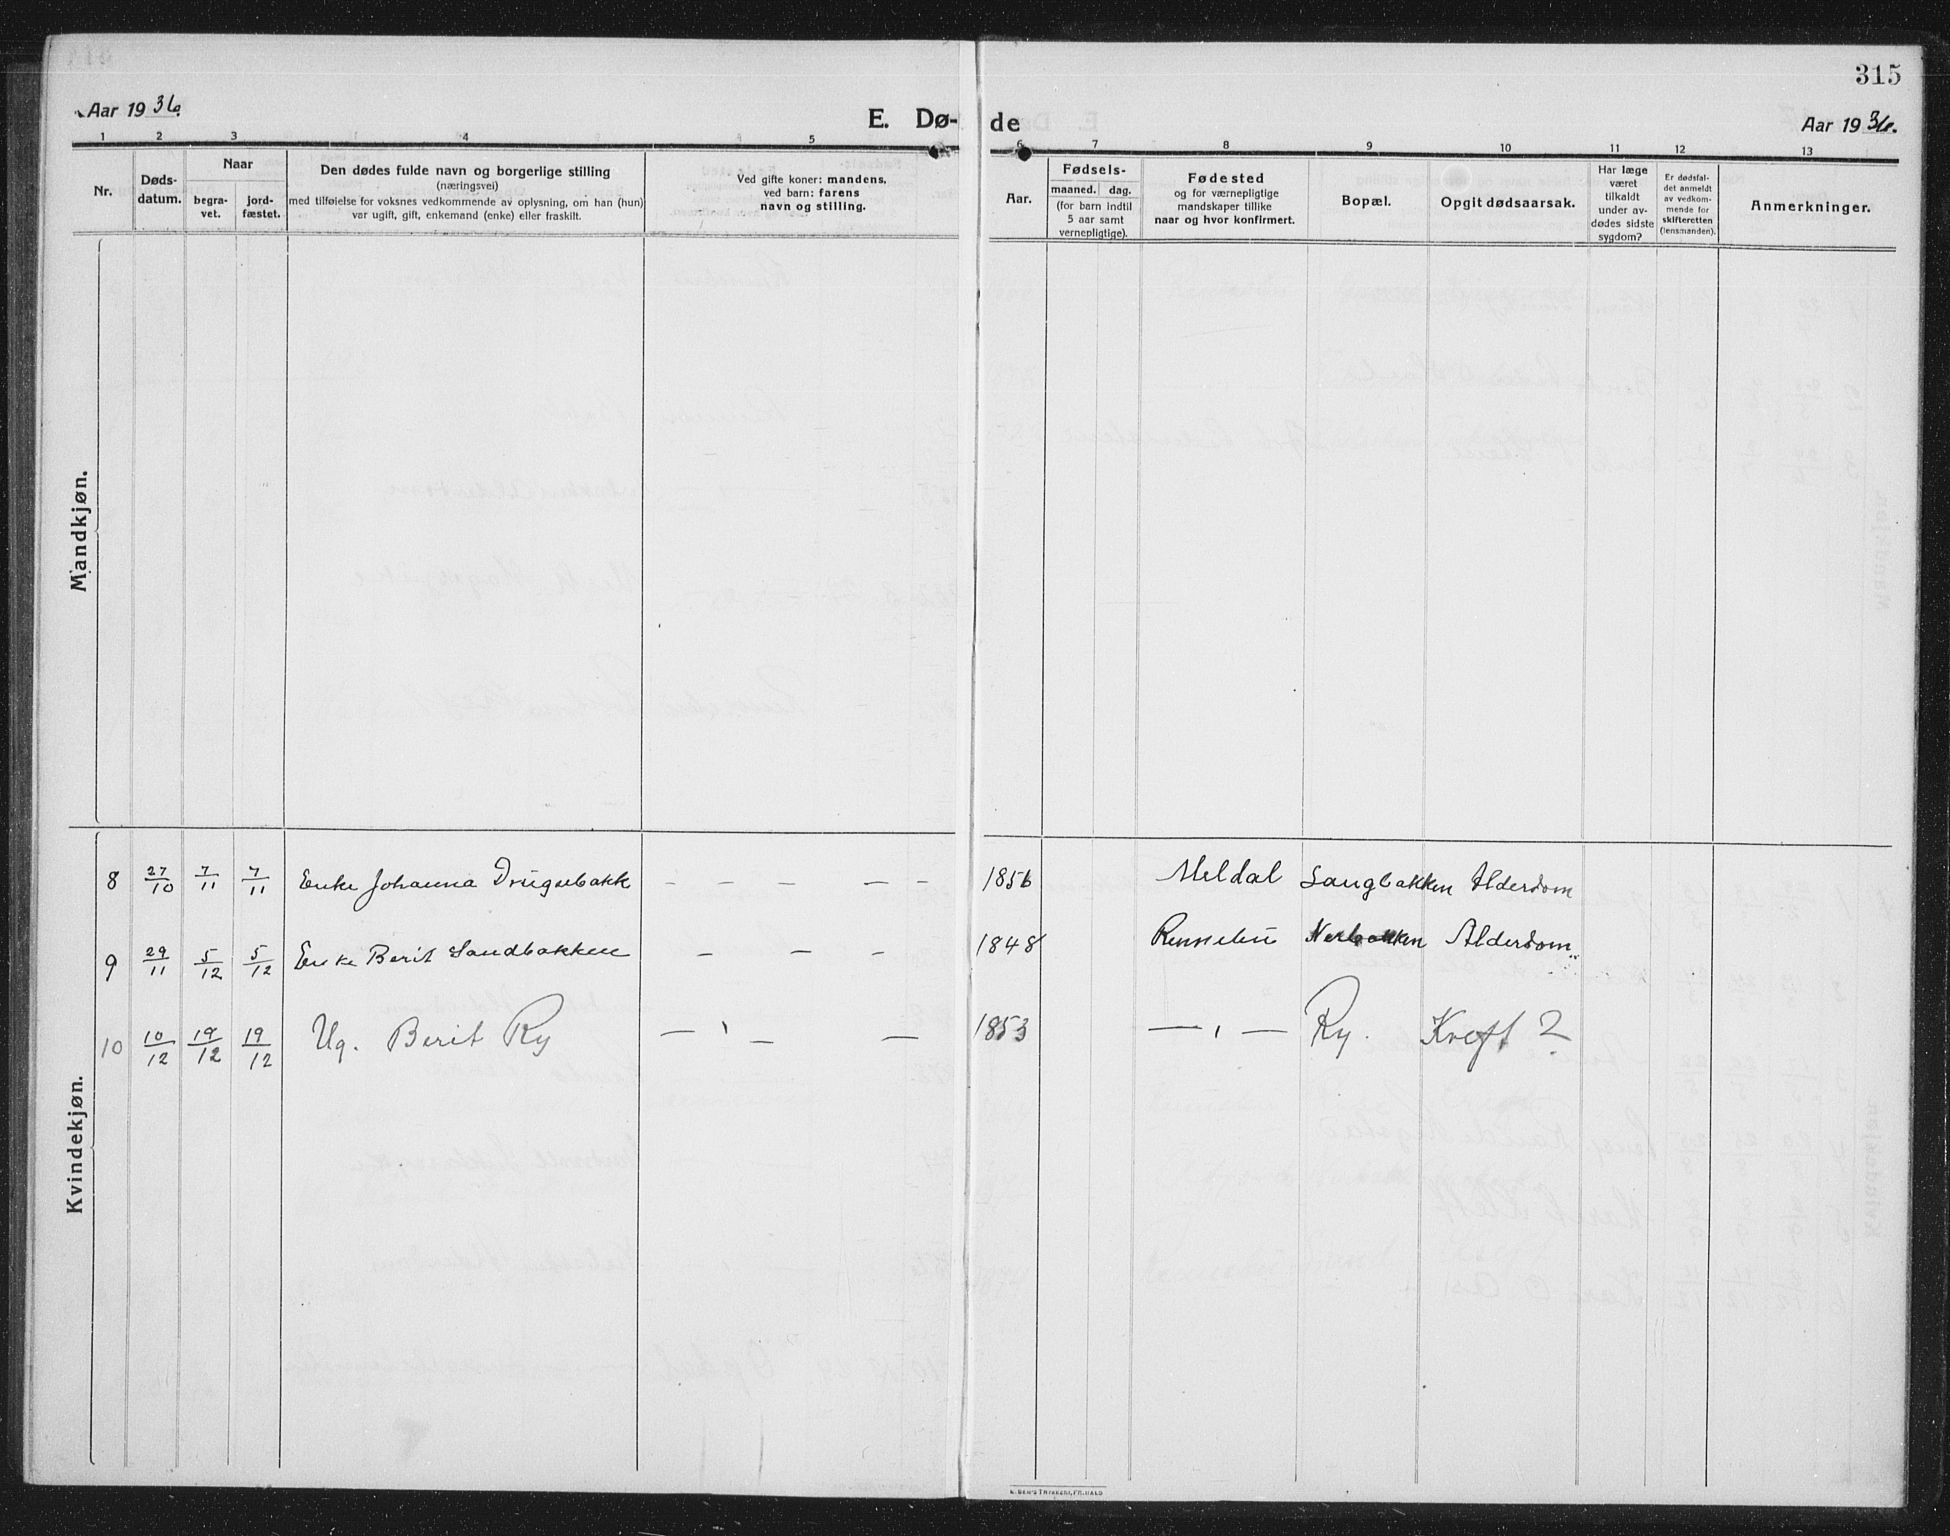 315
Aar 1936.
E. Dø-
de
Aar 1936.
1 2 3 4 5 6 7 8 9 10 11 12 13
Nr.
Døds-
datum.
Naar
begra-
vet.
jord-
fæstet.
Den dødes fulde navn og borgerlige stilling
(næringsvei)
med tilføielse for voksnes vedkommende av oplysning, om han (hun)
var ugift, gift, enkemand (enke) eller fraskilt.
Ved gifte koner: mandens,
ved barn: farens
navn og stilling.
Aar.
Fødsels-
maaned. dag.
(for barn indtil
5 aar samt
vernepligtige).
Fødested
og for værnepligtige
mandskaper tillike
naar og hvor konfirmert.
Bopæl.
Opgit dødsaarsak.
Har læge
været
tilkaldt
under av-
dødes sidste
sygdom?
Er dødsfal-
det anmeldt
av vedkom-
mende for
skifteretten
(lensmanden).
Anmerkninger.
Mandkjøn.
Kvindekjøn.
8 27/10 7/11 7/11 Enke Johanna Drugubakk - - - - - 1856 Meldal Alderdom
9 29/11 5/12 5/12 Enke Berit Sandbakken - - - 1848 Rennebu Nerbakken Alderdom
10 10/12 19/12 19/12 Ug. Berit Ry — " — — 1853 — " — Ry. Kreft ?